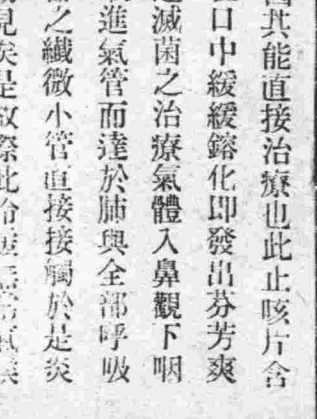 其能直接治療也此止咳片含
口中緩緩鎔化即發出芬芳爽
滅菌之治療氣體入鼻觀下咽
進氣管而達於肺與全部呼吸
之纖微小管直接接觸於是炎
見矣是故際此冷